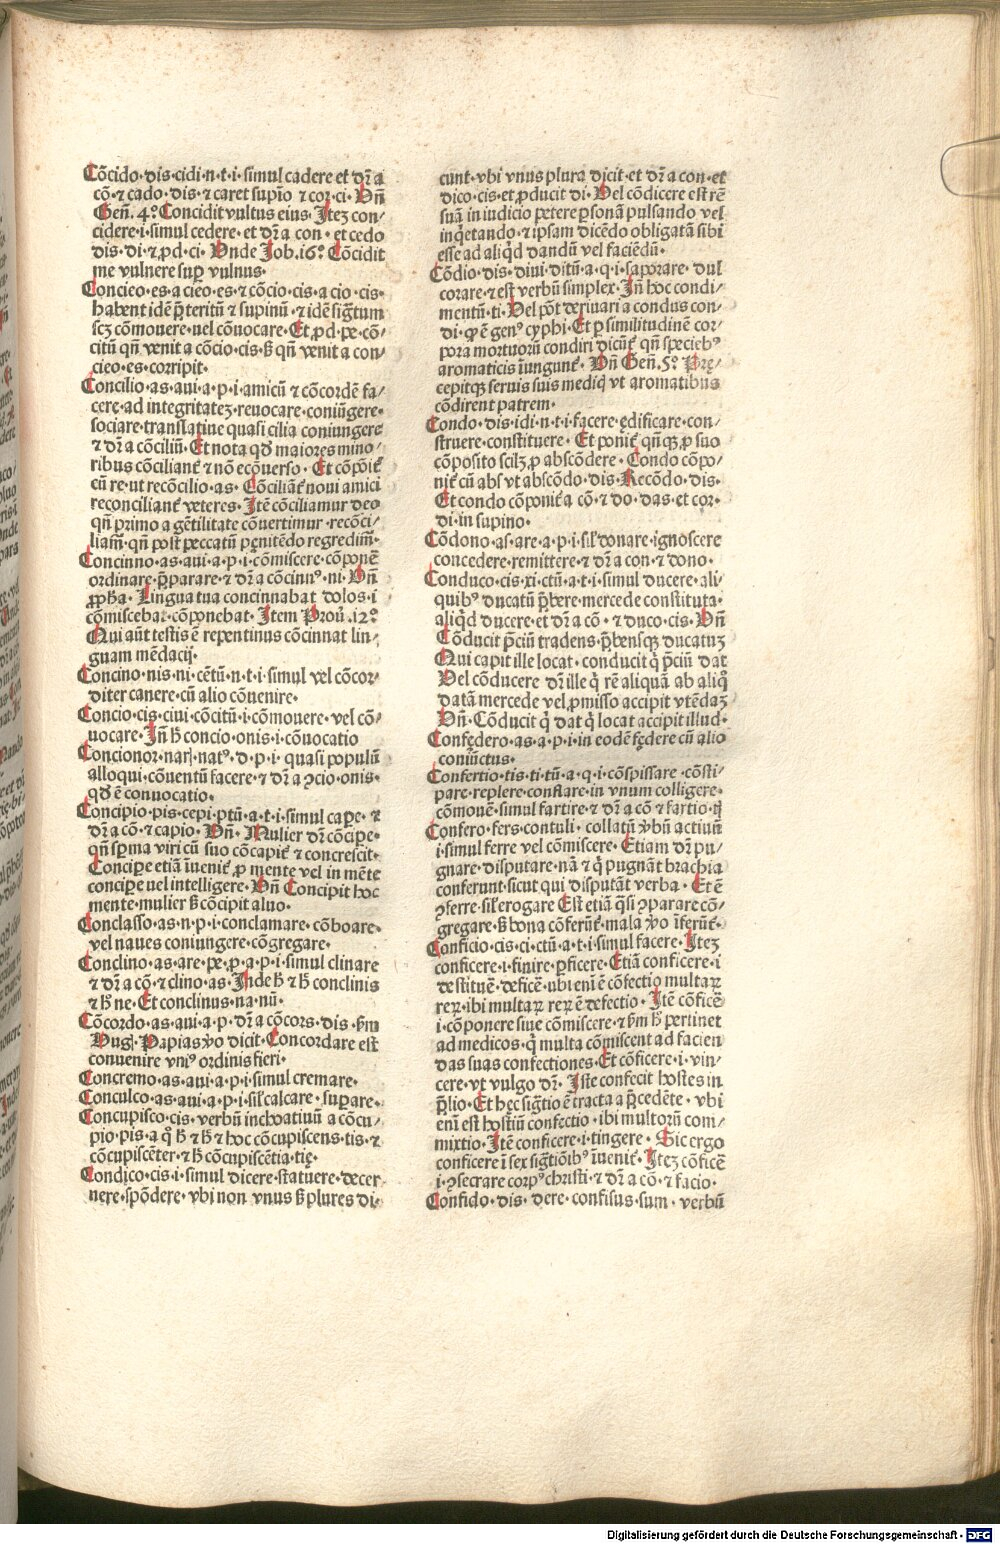 Cõcido·dis·cidi·n·t·i·simul cadere et dr̃ a
cõ·⁊ cado·dis·⁊ caret supĩo ⁊ cor·ci· Vñ
Geñ.4.º Concidit vultus eius·Itez con/
cidere·i·simul cedere·et dr̃ a con·et cedo
dis·di·⁊ ꝓd·ci· Vnde Job.16.º Cõcidit
me vulnere suꝑ vulnus·
Concieo·es·a cieo·es·⁊ cõcio·cis·a cio·cis·
habent idē p̃teritũ ⁊ supinũ·⁊ idē sigñtum
scz cõmouere·uel cõuocare·Et ꝓd·pe·cõ/
citũ qñ venit a cõcio·cis·ß qñ venit a con/
cieo·es·corripit·
Concilio·as·aui·a·p·i·amicũ ⁊ cõcordē fa/
cere·ad integritatez·reuocare·coniũgere·
sociare·translatiue quasi cilia coniungere
⁊ dr̃ a cõciliũ·Et nota qđ maiores mino/
ribus cõciliant̃ ⁊ nõ ecõuerso· Et cõpõit̃
cũ re·ut recõcilio·as· Cõciliãt̃ noui amici
reconciliant̃ veteres·Itē cõciliamur deo
qñ primo a gētilitate cõuertimur·recõci/
liam̃·qñ post peccatũ pęnitēdo regredim̃·
Concinno·as·aui·a·p·i·cõmiscere·cõponē
ordinare·p̃parare·⁊ dr̃ a cõcinn⁹·ni· Vñ
ꝓpħa· Lingua tua concinnabat dolos·i
cõmiscebat·cõponebat· Item Prou.12.º
Qui aũt testis ē repentinus cõcinnat lin/
guam mēdacij·
Concino·nis·ni·cētũ·n·t·i·simul vel cõcor/
diter canere·cũ alio cõuenire·
Concio·cis·ciui·cõcitũ·i·cõmouere·vel cõ/
uocare·Iñ ħ concio·onis·i·cõuocatio
Concionor·narꝭ·nat⁹·d·p·i·quasi populũ
alloqui·cõuentũ facere·⁊ dr̃ a ꝯcio·onis·
qđ ē conuocatio·
Concipio·pis·cepi·ptũ·a·t·i·simul capę·⁊
dr̃ a cõ·⁊ capio· Vñ· Mulier dr̃ cõciꝑe·
qñ sꝑma viri cũ suo cõcapit̃ ⁊ concrescit·
Conciꝑe etiã ĩuenit̃ ꝓ mente vel in mēte
conciꝑe uel intelligere· Vñ Concipit hoc
mente·mulier ß cõcipit aluo·
Conclasso·as·n·p·i·conclamare·cõboare·
vel naues coniungere·cõgregare·
Conclino·as·are·pe·ꝓ·a·p·i·simul clinare
⁊ dr̃ a cõ·⁊ clino·as·Inde ħ ⁊ ħ conclinis
⁊ ħ ne·Et conclinus·na·nũ·
Cõcordo·as·aui·a·p·dr̃ a cõcors·dis·ẜm
Hug̃· Papias ỽo dicit·Concordare est
conuenire vni⁹ ordinis fieri·
Concremo·as·aui·a·p·i·simul cremare·
Conculco·as·aui·a·p·i·sił calcare·suꝑare·
Concupisco·cis·verbũ inchoatiuũ a cõcu/
pio·pis·a q̊ ħ ⁊ ħ ⁊ hoc cõcupiscens·tis·⁊
cõcupiscēter·⁊ ħ cõcupiscētia·tię·
Condico·cis·i·simul dicere·statuere·decer
nere·spõdere·vbi non vnus ß plures di/
cunt·vbi vnus plura dicit·et dr̃ a con·et
dico·cis·et ꝓducit di· Vel cõdicere est rē
suã in iudicio petere ꝑsonã pulsando vel
inq̃etando·⁊ ipsam dicēdo obligatã sibi
esse ad aliq̃d dandũ vel faciēdũ·
Cõdio·dis·diui·ditũ·a·q·i·saporare·dul
corare·⁊ est verbũ simplex·Iñ hoc condi/
mentũ·ti·Vel põt deriuari a condus con/
di·q̃ ē gen⁹ cyphi·Et ꝑ similitudinē cor/
pora mortuorũ condiri dicũt̃ qñ specieb⁹
aromaticis ĩungunt̃· Vñ Geñ.5.º Pręe/
cepitqꝫ seruis suis mediq̃ vt aromatibus
cõdirent patrem·
Condo·dis·idi·n·t·i·facere·ędificare·con/
struere·constituere· Et ponit̃ qñqꝫ ꝓ suo
cõposito scilꝫ ꝓ abscõdere·Condo cõpo/
nit̃ cũ abs vt abscõdo·dis·Recõdo·dis·
Et condo cõponit̃ a cõ·⁊ do·das·et cor·
di·in supino·
Cõdono·as·are·a·p·i·sił donare·ignoscere
concedere·remittere·⁊ dr̃ a con·⁊ dono·
Conduco·cis·xi·ctũ·a·t·i·simul ducere·ali/
quib⁹ ducatũ p̃bere·mercede constituta·
aliq̃d ducere·et dr̃ a cõ·⁊ duco·cis· Vñ
Cõducit p̃ciũ tradens·p̃bensqꝫ ducatuꝫ
Qui capit ille locat·conducit q̃ p̃ciũ dat
Vel cõducere dr̃ ille q̃ rē aliquã ab aliq̊
datã mercede vel ꝓmisso accipit vtēdaꝫ
Vñ·Cõducit q̃ dat q̃ locat accipit illud·
Confędero·as·a·p·i·in eodē fędere cũ alio
coniũctus·
Confertio·tis·ti·tũ·a·q·i·cõspissare·cõsti/
pare·replere·conflare·in vnum colligere·
cõmouē·simul fartire·⁊ dr̃ a cõ ⁊ fartio·t̃t
Confero·fers·contuli·collatũ ỽbũ actiuũ
i·simul ferre vel cõmiscere· Etiam dr̃ pu/
gnare·disputare·nã ⁊ q̃ pugnãt brachia
conferunt·sicut qui disputãt verba·Et ē
ꝯferre·sił erogare Est etiã q̃si ꝯparare cõ/
gregare·ß bona cõferũt̃·mala ỽo ĩferũt̃·
Conficio·cis·ci·ctũ·a·t·i·simul facere·Itez
conficere·i·finire·ꝑficere·Etiã conficere·i
destituē·deficē·ubi eni ē cõfectio multaꝝ
reꝝ·ibi multaꝝ reꝝ ē defectio· Itē cõficē
i·cõponere siue cõmiscere·⁊ ẜm ħ pertinet
ad medicos·q̃ multa cõmiscent ad facien
das suas confectiones·Et cõficere·i·vin/
cere·vt vulgo dr̃· Iste confecit hostes in
p̃lio·Et hęc sigñtio ē tracta a p̃cedēte·vbi
eni est hostiũ confectio·ibi multorũ com/
mixtio·Itē conficere·i·tingere· Sic ergo
conficere ĩ sex sigñtiõib⁹ ĩuenit̃·Itez cõficē
i·ꝯsecrare corp⁹ christi·⁊ dr̃ a cõ·⁊ facio·
Confido·dis·dere·confisus·sum·verbũ
Digitalisierung gefördert durch die Deutsche Forschungsgemeinschaft - DFG